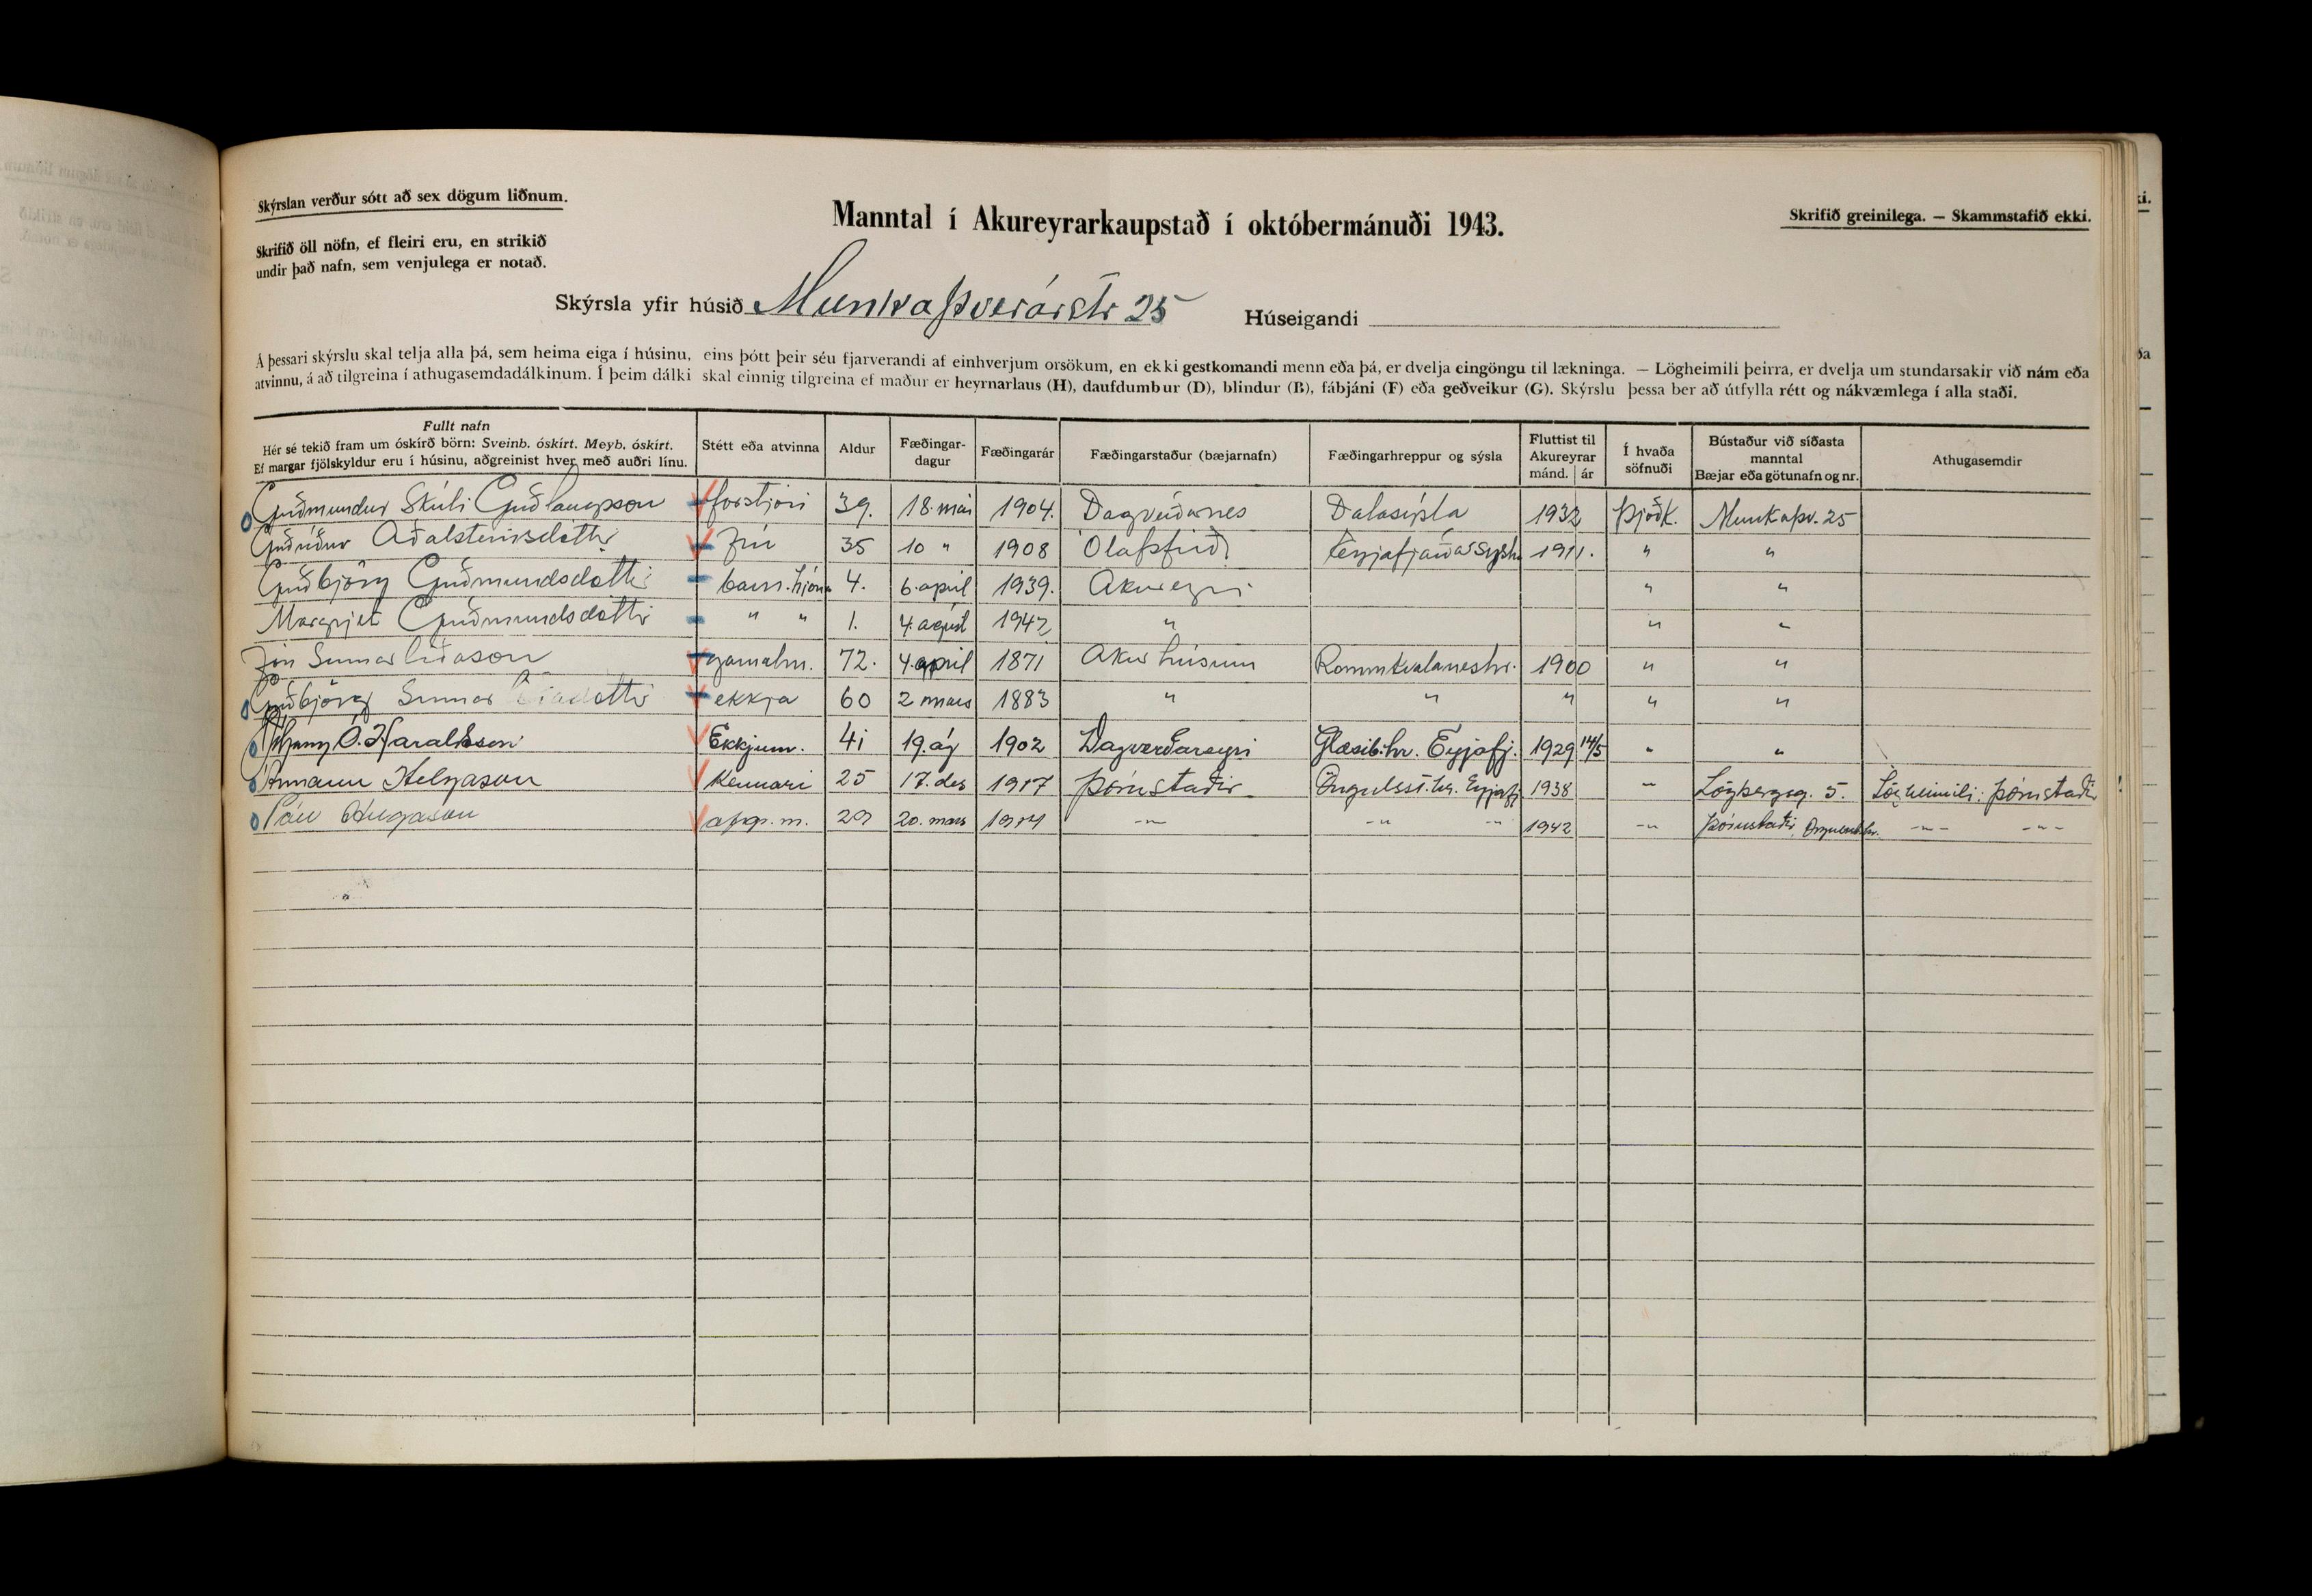 Skýrslan verður sótt að sex dögum liðnum.
Skrifið öll nöfn, ef fleiri eru, en strikið
undir það nafn, sem venjulega er notað.
Manntal í Akureyrarkaupstað í októbermánuði 1943.
Skrifið greinilega. — Skammstafið ekki.
Skýrsla yfir húsið Munkaþverárstr 25 Húseigandi
Á þessari skýrslu skal telja alla þá, sem heima eiga í húsinu, eins þótt þeir séu fjarverandi af einhverjum orsökum, en ekki gestkomandi menn eða þá, er dvelja eingöngu til lækninga. — Lögheimili þeirra, er dvelja um stundarsakir við nám eða
atvinnu, á að tilgreina í athugasemdadálkinum. Í þeim dálki skal einnig tilgreina ef maður er heyrnarlaus (H), daufdumbur (D), blindur (B), fábjáni (F) eða geðveikur (G). Skýrslu þessa ber að útfylla rétt og nákvæmlega í alla staði.
Fullt nafn
Hér sé tekið fram um óskírð börn: Sveinb. óskírt. Meyb. óskírt.
Ef margar fjölskyldur eru í húsinu, aðgreinist hver með auðri línu.
Stétt eða atvinna
Aldur
Fæðingar-
dagur
Fæðingarár
Fæðingarstaður (bæjarnafn)
Fæðingarhreppur og sýsla
Fluttist til
Akureyrar
mánd. ár
Í hvaða
söfnuði
Bústaður við síðasta
manntal
Bæjar eða götunafn og nr.
Athugasemdir
Guðmundur Skúli Guðlaugsson forstjóri 39. 18. maí 1904. Dagverðarnes Dalasýsla 1932 Þjóðk. Munkaþv. 25
Guðríður Aðalsteinsdóttir frú 35 10 " 1908 Ólafsfirði Eyjafjarðarsýslu 1911. " "
Guðbjörg Guðmundsdóttir barn hjóna 4. 6. apríl 1939. Akureyri " "
Margrjet Guðmundsdóttir " " 1. 4. ágúst 1942 " " "
Jón Sumarliðason gamalm. 72. 4. apríl 1871 Akurhúsum Rosmhvalaneshr. 1900 " "
Guðbjörg Sumarliðadóttir ekkja 60 2 mars 1883 " " " " "
Ó. Haraldsson Ekkjum. 41 19. ág 1902 Dagverðareyri Glæsib.hr. Eyjafj. 1929 14/5 " "
Ármann Helgason Kennari 25 17. des 1917 Þórustaðir Öngulsst.hr. Eyjafj. 1938 " Lögbergsg. 5. Lögheimili: Þórustaðir!
Páll Helgason afgr. m. 29 20. mars 1914 -"- -"- -"- 1942 -"- Þórustaðir, Öngulsst.hr. -"- -"-